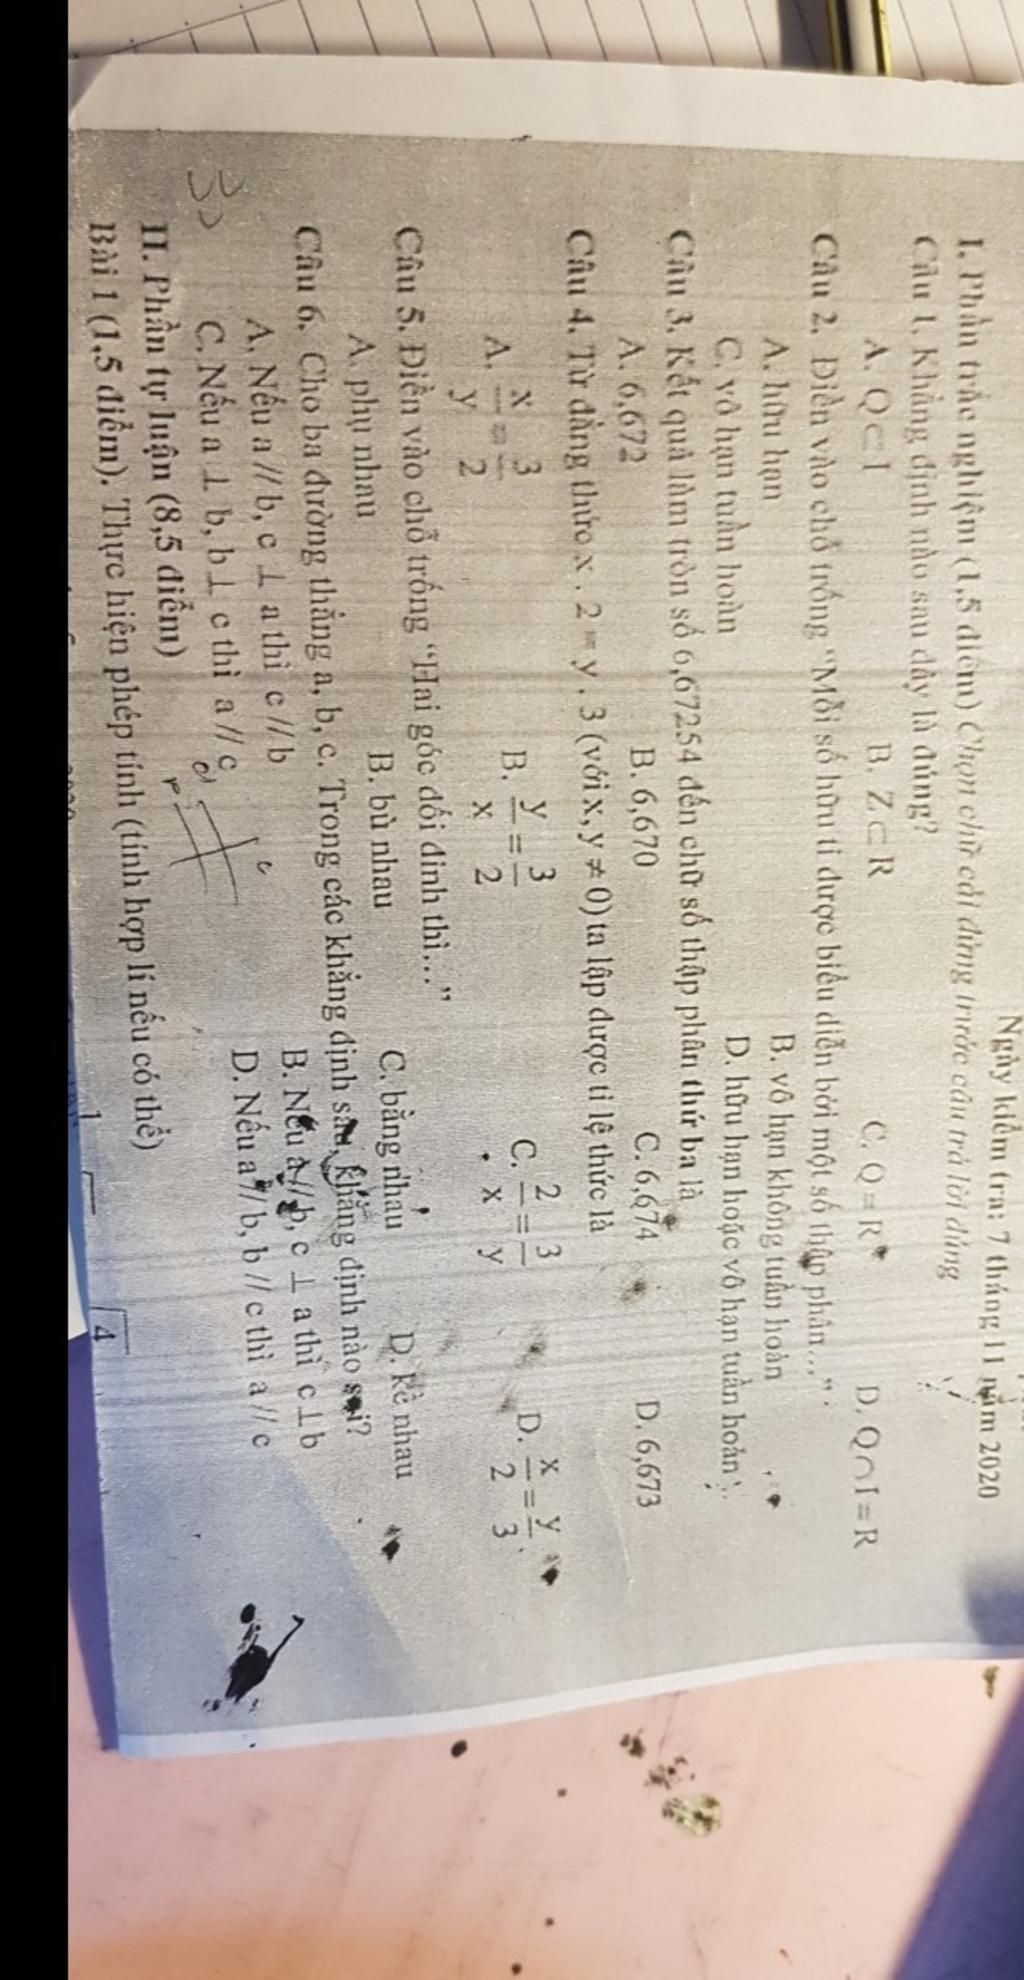 Ngày kiểm tra: 7 tháng 11 năm 2020
I. Phần trắc nghiệm (1,5 điểm) Chọn chữ cái đứng trước câu trả lời đúng
Câu 1. Khẳng định nào sau đây là đúng?
A. Q ⊂ I B. Z ⊂ R C. Q = R D. Q ∩ I = R
Câu 2. Điền vào chỗ trống "Mỗi số hữu tỉ được biểu diễn bởi một số thập phân…".
A. hữu hạn B. vô hạn không tuần hoàn
C. vô hạn tuần hoàn D. hữu hạn hoặc vô hạn tuần hoàn
Câu 3. Kết quả làm tròn số 6,67254 đến chữ số thập phân thứ ba là
A. 6,672 B. 6,670 C. 6,674 D. 6,673
Câu 4. Từ đẳng thức x . 2 = y . 3 (với x, y ≠ 0) ta lập được tỉ lệ thức là
A. x/y = 3/2 B. y/x = 3/2 C. 2/x = 3/y D. x/2 = y/3.
Câu 5. Điền vào chỗ trống "Hai góc đối đỉnh thì…"
A. phụ nhau B. bù nhau C. bằng nhau D. kề nhau
Câu 6. Cho ba đường thẳng a, b, c. Trong các khẳng định sau, khẳng định nào sai?
A. Nếu a // b, c ⊥ a thì c // b B. Nếu a // b, c ⊥ a thì c ⊥ b
C. Nếu a ⊥ b, b ⊥ c thì a // c D. Nếu a // b, b // c thì a // c
c
II. Phần tự luận (8,5 điểm)
Bài 1 (1,5 điểm). Thực hiện phép tính (tính hợp lí nếu có thể)
1
4